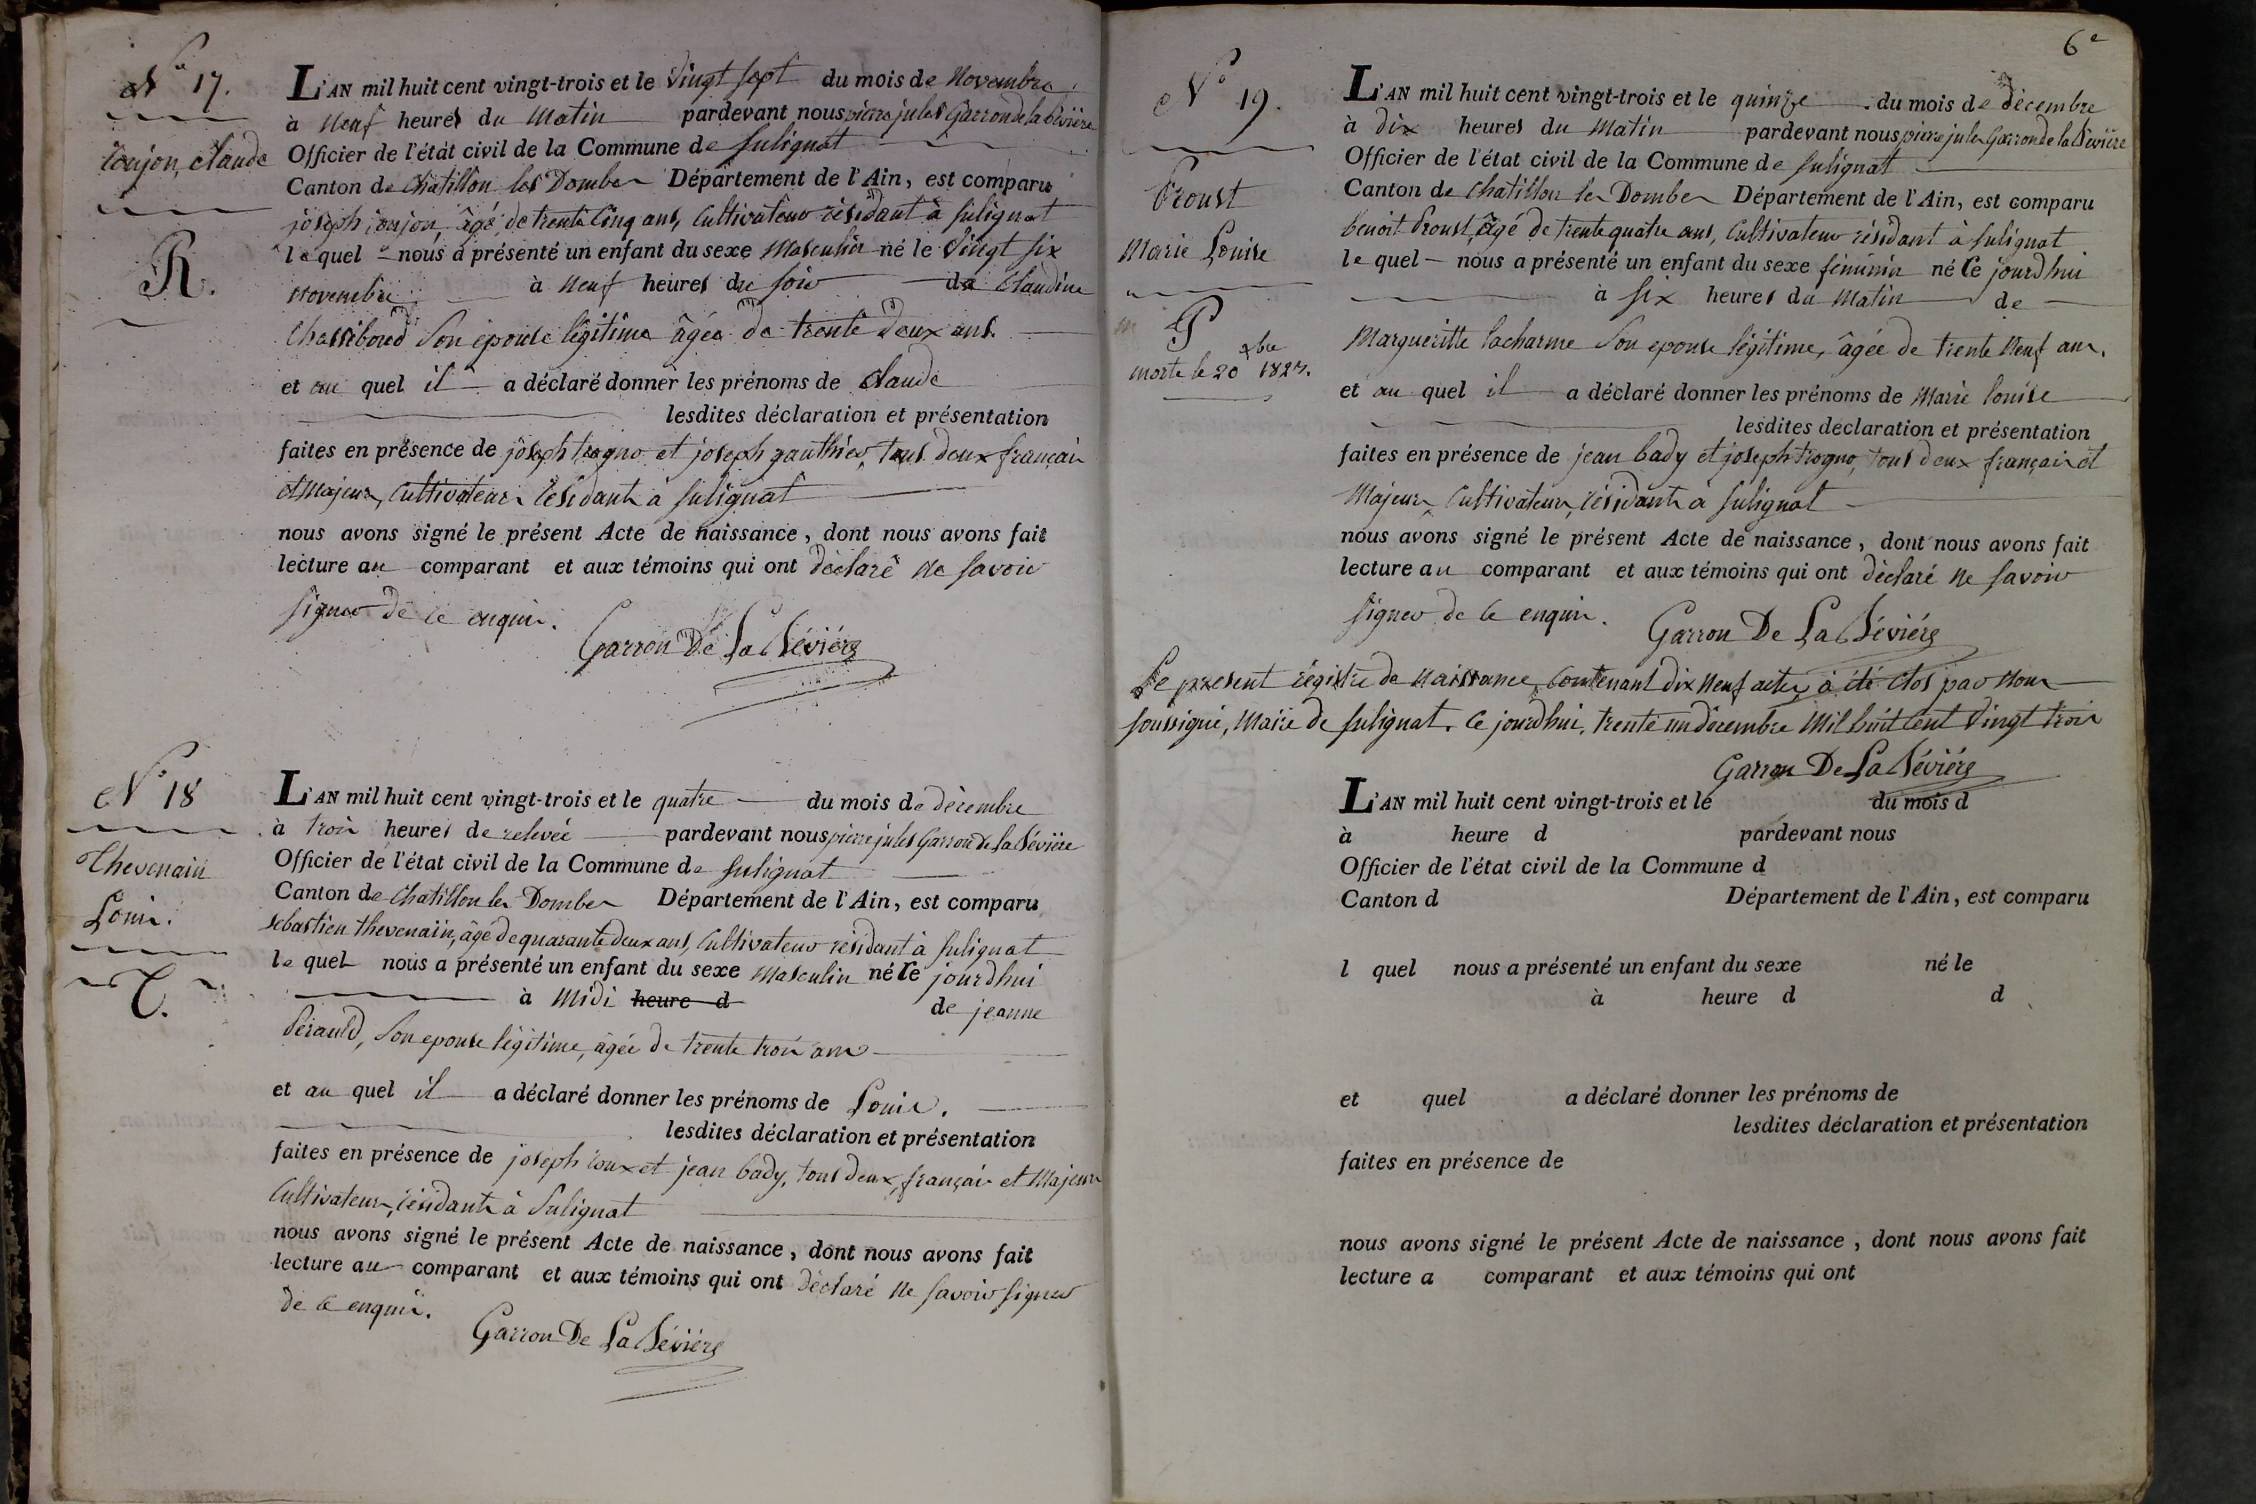 N.º 17.
L'AN mil huit cent vingt-trois et le vingt sept du mois de Novembre
à Neuf heures du Matin pardevant nous pierre jules Garron de la Bévière
Officier de l'état civil de la Commune de Sulignat
Claude
Canton de Chatillon les Dombes Département de l'Ain, est comparu
joseph âgé de trente cinq ans, Cultivateur résidant à Sulignat
lequel nous a présenté un enfant du sexe Masculin né le vingt six
R.
Novembre à Neuf heures du soir de Claudine
son épouse légitime âgée de trente deux ans.
et au quel il a déclaré donner les prénoms de Claude
lesdites déclaration et présentation
faites en présence de joseph trogno et joseph gauthier, tous deux français
et Majeurs, Cultivateurs résidants à Sulignat
nous avons signé le présent Acte de naissance, dont nous avons fait
lecture au comparant et aux témoins qui ont déclaré ne savoir
signer de ce enquis.
Garron De La Bévière
N.º 18
L'AN mil huit cent vingt-trois et le quatre du mois de décembre
à trois heures de relevée pardevant nous pierre jules Garron de La Bévière
Thevenain
Officier de l'état civil de la Commune de Sulignat
Louis.
Canton de Chatillon les Dombes Département de l'Ain, est comparu
sebastien thevenain, âgé de quarante deux ans, Cultivateur résidant à Sulignat
lequel nous a présenté un enfant du sexe Masculin né ce jourd'hui
T.
à Midi heure d de jeanne
Péraud, son epouse légitime, âgée de trente trois ans
et au quel il a déclaré donner les prénoms de Louis.
lesdites déclaration et présentation
faites en présence de joseph roux et jean bady, tous deux français et Majeurs
Cultivateurs, résidants à Sulignat
nous avons signé le présent Acte de naissance, dont nous avons fait
lecture au comparant et aux témoins qui ont déclaré ne savoir signer
de ce enquis.
Garron De La Bévière
6e
N.º 19.
L'AN mil huit cent vingt-trois et le quinze du mois de décembre
à dix heures du Matin pardevant nous pierre jules Garron de la Bévière
Officier de l'état civil de la Commune de Sulignat
Proust
Canton de Chatillon les Dombes Département de l'Ain, est comparu
benoit Proust, âgé de trente quatre ans, Cultivateur résidant à Sulignat
Marie Louise
lequel nous a présenté un enfant du sexe féminin né ce jourd'hui
à six heures du Matin de
P
Margueritte lacharme son epouse légitime, âgée de trente Neuf ans.
morte le 20 xbre
et au quel il a déclaré donner les prénoms de Marie louise
lesdites déclaration et présentation
faites en présence de jean bady et joseph trogno, tous deux français et
Majeurs, Cultivateurs, résidants à Sulignat
nous avons signé le présent Acte de naissance, dont nous avons fait
lecture au comparant et aux témoins qui ont déclaré ne savoir
signer de ce enquis.
Garron De La Bévière
Le present régistre de Naissance, Contenant dix Neuf actes, a été clos par Nous
soussigné, Maire de Sulignat. Ce jourd'hui, trente un décembre Mil huit cent vingt trois
Garron De La Bévière
L'AN mil huit cent vingt-trois et le du mois d
à heure d pardevant nous
Officier de l'état civil de la Commune d
Canton d Département de l'Ain, est comparu
l quel nous a présenté un enfant du sexe né le
à heure d d
et quel a déclaré donner les prénoms de
lesdites déclaration et présentation
faites en présence de
nous avons signé le présent Acte de naissance, dont nous avons fait
lecture a comparant et aux témoins qui ont